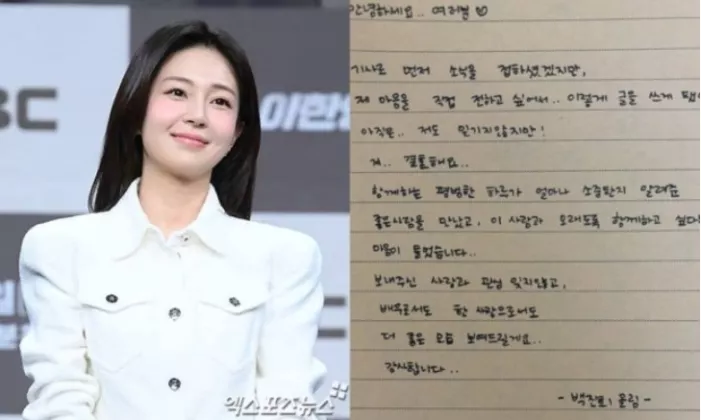 BC
이한
엑스포츠뉴스
안녕하세요.. 여러분
기사로 먼저 소식을 접하셨겠지만,
제 마음을 직접 전하고 싶어서.. 이렇게 글을 쓰게 됐
아직은.. 저도 믿기지않지만!
저.. 결혼해요..
함께하는 평범한 하루가 얼마나 소중한지 알려준
좋은사람을 만났고, 이 사람과 오래도록 함께하고 싶다
마음이 들었습니다..
보내주신 사랑과 관심 잊지않고,
배우로서도 한 사람으로서도
더 좋은 모습 보여드릴게요..
감사합니다..
- 백진희 올림 -